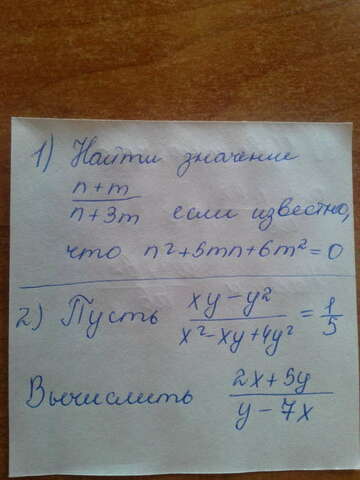 1) Найти значение
(n+m)/(n+3m) если известно,
что n²+5mn+6m²=0
2) Пусть (xy-y²)/(x²-xy+4y²) = 1/5
Вычислить (2x+5y)/(y-7x)